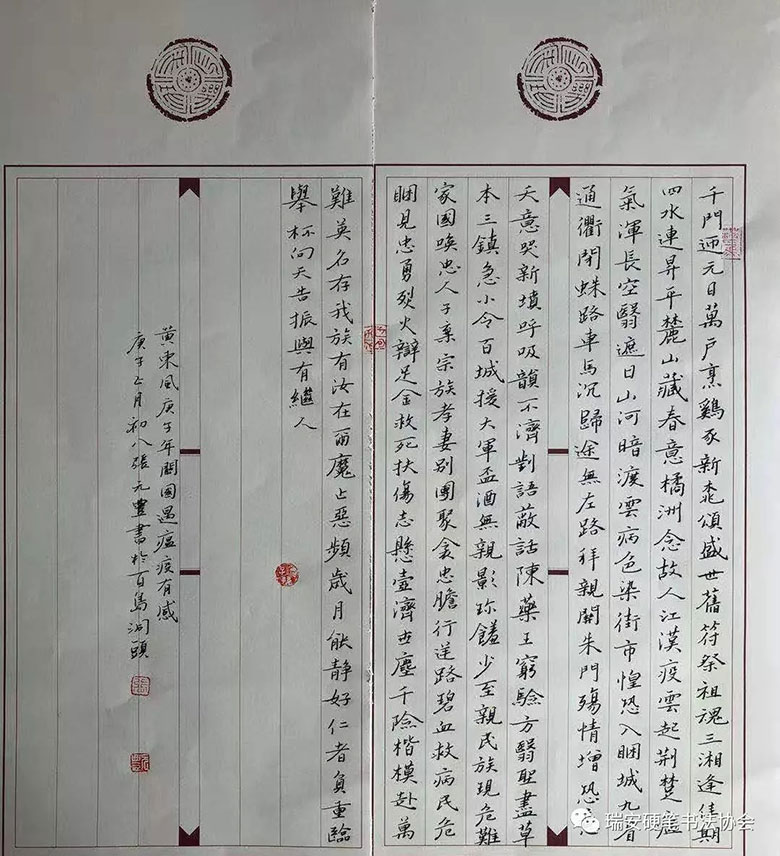 千門迎元日萬戶烹鷄豕新桃頌盛世舊符祭祖魂三湘逢佳期
四水連昇平麓山藏春意橘洲念故人江漢疫雲起荊楚虐
氣渾長空翳遮日山河暗渡雲病色染街市惶恐入睏城九省
通衢閉蛛路車馬沉歸途無左路拜親閉朱門殤情增恐
天意哭新墳呼吸韻不濟對語蔽話陳藥王窮驗方翳聖盡草
本三鎮急小令百城援大軍盃酒無親影珍饈少至親民族現危難
家國喚忠人子亲宗族孝妻別團聚衾忠膽行逆路碧血救病民危
睏見忠勇烈火辯足金救死扶傷志懸壺濟世塵千險楷模赴萬
難英名存我族有汝在爾魔上惡頻歲月能靜好仁者負重臨
舉杯向天告振興有繼人
黃東風庚子年關國遇瘟疫有感
庚子正月初八張元豐書於百島洞頭
瑞安硬笔书法协会